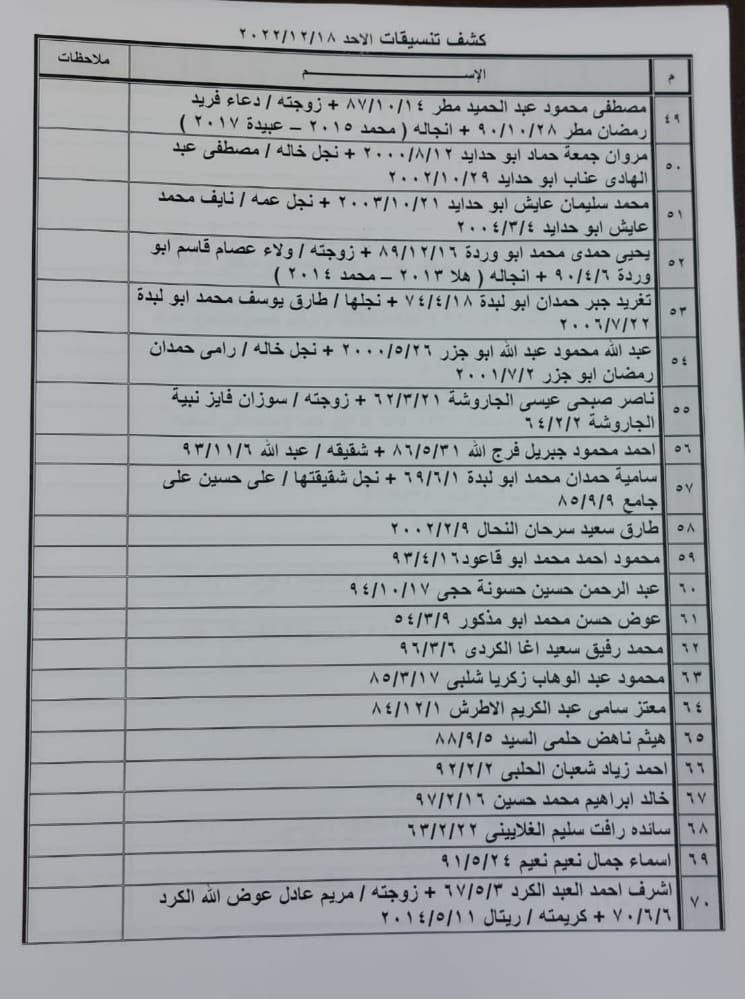 كشف تنسيقات الاحد ٢٠٢٢/١٢/١٨
م الإســـــــــــــــم ملاحظات
٤٩ مصطفى محمود عبد الحميد مطر ٨٧/١٠/١٤ + زوجته / دعاء فريد
رمضان مطر ٩٠/١٠/٢٨ + انجاله ( محمد ٢٠١٥ – عبيدة ٢٠١٧ )
٥٠ مروان جمعة حماد ابو حدايد ٢٠٠٠/٨/١٢ + نجل خاله / مصطفى عبد
الهادى عناب ابو حدايد ٢٠٠٢/١٠/٢٩
٥١ محمد سليمان عايش ابو حدايد ٢٠٠٣/١٠/٢١ + نجل عمه / نايف محمد
عايش ابو حدايد ٢٠٠٤/٣/٤
٥٢ يحيى حمدى محمد ابو وردة ٨٩/١٢/١٦ + زوجته / ولاء عصام قاسم ابو
وردة ٩٠/٤/٦ + انجاله ( هلا ٢٠١٣ – محمد ٢٠١٤ )
٥٣ تغريد جبر حمدان ابو لبدة ٧٤/٤/١٨ + نجلها / طارق يوسف محمد ابو لبدة
٢٠٠٦/٧/٢٢
٥٤ عبد الله محمود عبد الله ابو جزر ٢٠٠٠/٥/٢٦ + نجل خاله / رامى حمدان
رمضان ابو جزر ٢٠٠١/٧/٢
٥٥ ناصر صبحى عيسى الجاروشة ٦٢/٣/٢١ + زوجته / سوزان فايز نبية
الجاروشة ٦٤/٢/٢
٥٦ احمد محمود جبريل فرج الله ٨٦/٥/٣١ + شقيقه / عبد الله ٩٣/١١/٦
٥٧ سامية حمدان محمد ابو لبدة ٦٩/٦/١ + نجل شقيقتها / على حسين على
جامع ٨٥/٩/٩
٥٨ طارق سعيد سرحان النحال ٢٠٠٢/٢/٩
٥٩ محمود احمد محمد ابو قاعود٩٣/٤/١٦
٦٠ عبد الرحمن حسين حسونة حجى ٩٤/١٠/١٧
٦١ عوض حسن محمد ابو مذكور ٥٤/٣/٩
٦٢ محمد رفيق سعيد اغا الكردى ٩٦/٣/٦
٦٣ محمود عبد الوهاب زكريا شلبى ٨٥/٣/١٧
٦٤ معتز سامى عبد الكريم الاطرش ٨٤/١٢/١
٦٥ هيثم ناهض حلمى السيد ٨٨/٩/٥
٦٦ احمد زياد شعبان الحلبى ٩٢/٢/٢
٦٧ خالد ابراهيم محمد حسين ٩٧/٢/١٦
٦٨ سائده رافت سليم الغلايينى ٦٣/٢/٢٢
٦٩ اسماء جمال نعيم نعيم ٩١/٥/٢٤
٧٠ اشرف احمد العبد الكرد ٦٧/٥/٣ + زوجته / مريم عادل عوض الله الكرد
٧٠/٦/٦ + كريمته / ريتال ٢٠١٤/٥/١١